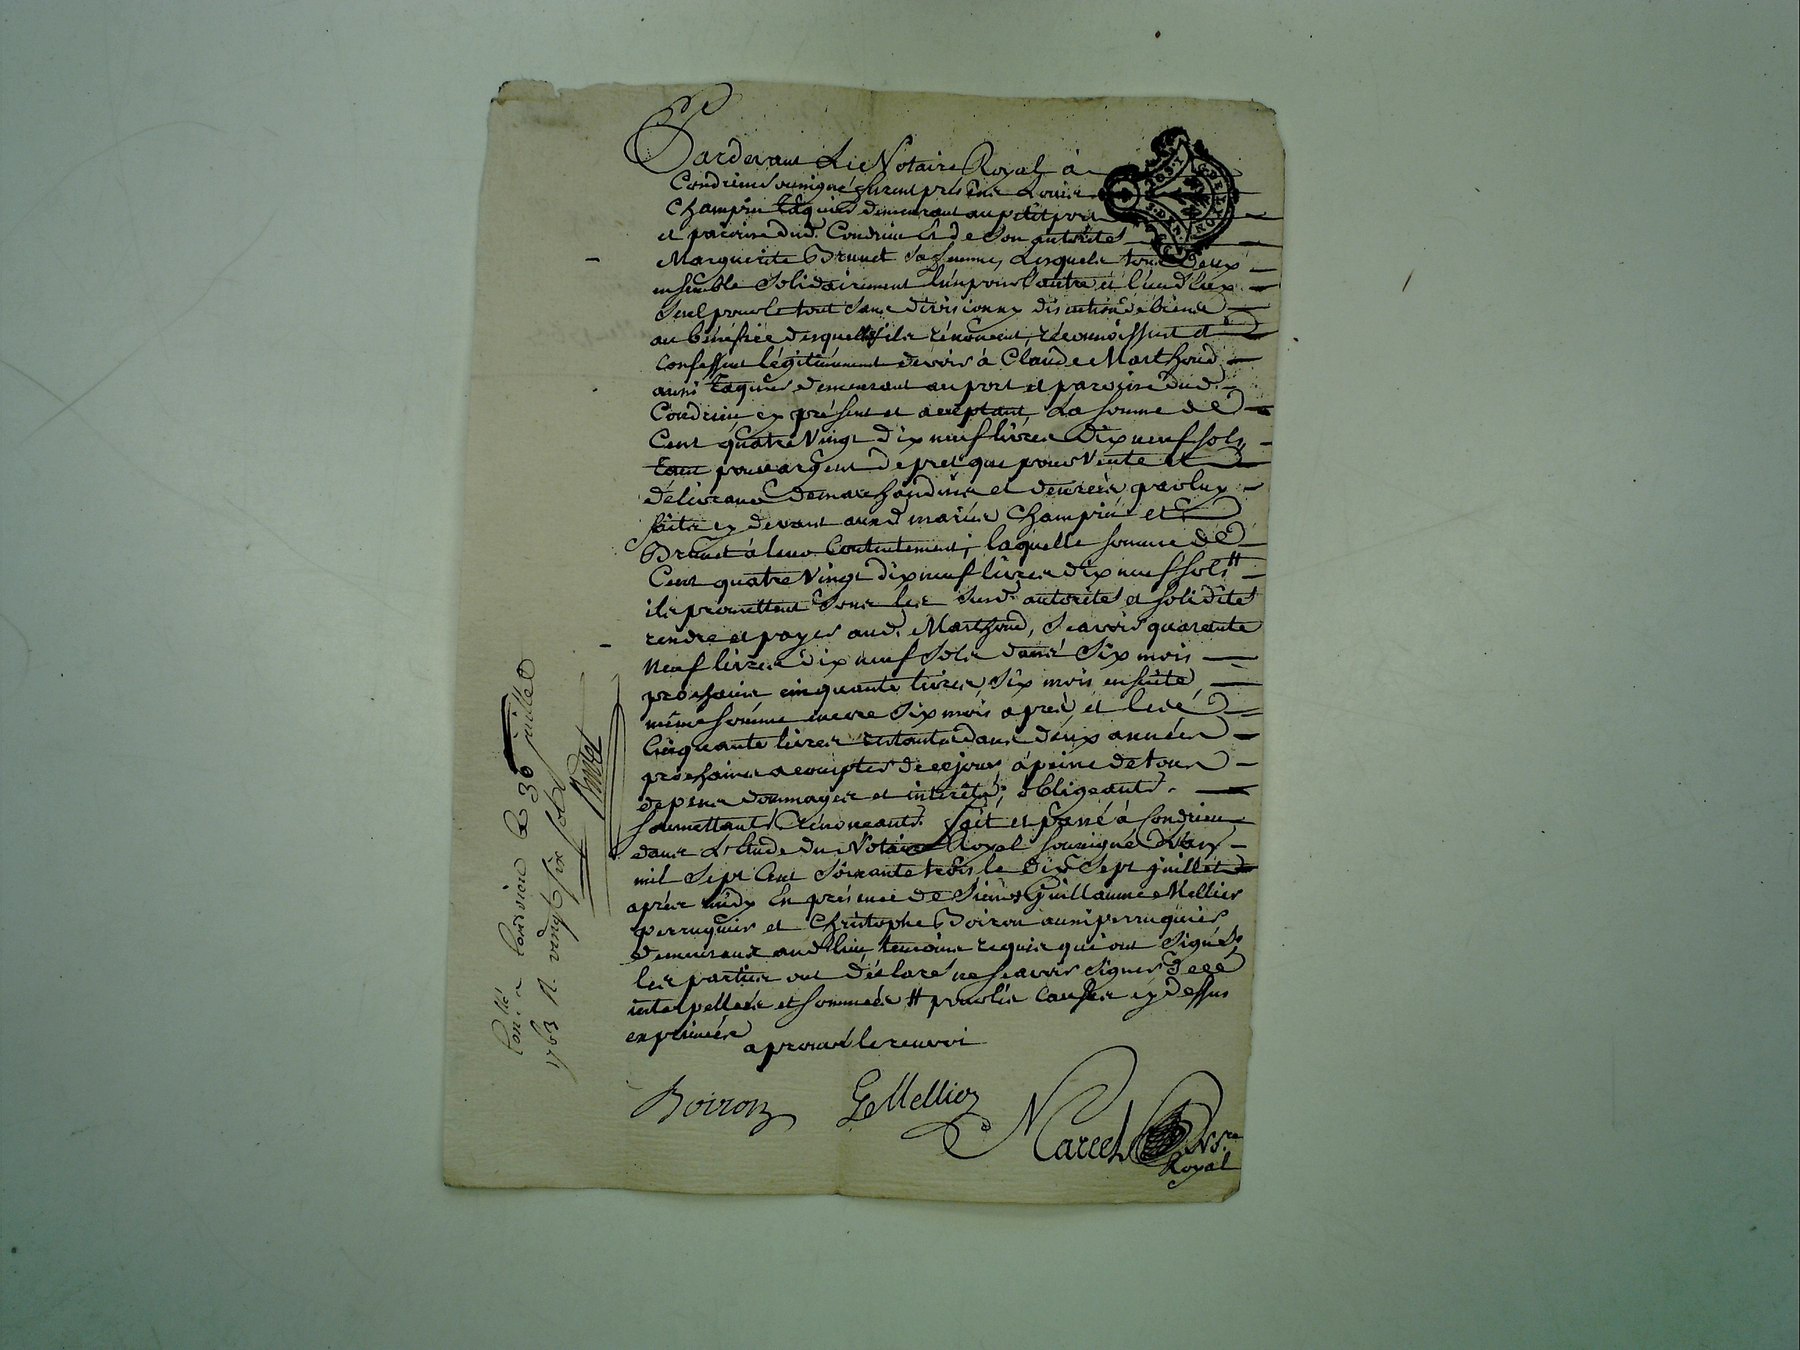 Pardevant Le Notaire Royal à
Condrieu soussigné furent présens Louis
Champin demeurant au petit port
et paroisse dud. Condrieu et de son autorité
Marguerite Brunet sa femme, Lesquels tous deux
ensemble solidairement l'un pour l'autre et l'un d'eux
seul pour le tout sans division ny discution de biens
au bénéfice desquels ils rénoncent, réconnoissent et
confessent légitimement devoir à Claude Marthoud
aussi demeurant au port et paroisse dud.
Condrieu cy présent et aceptant, La somme de
Cent quatre Vingt dix neuf livres dix neuf sols,
tant pour argent de pret que pour Vente et
délivrance de marchandises et denrées par luy
faite cy devant aud mariés Champin et
Brunet à leur Contentement; laquelle somme de
Cent quatre Vingt dix neuf livres dix neuf sols #
ils promettent sous les susd. autorité et solidité
rendre et payer aud. Marthoud, Sçavoir quarante
Neuf livres dix neuf sols dans Six mois
prochains cinquante livres, six mois ensuite,
même somme encore Six mois après, et les
Cinquante livres restantes dans deux années
prochaines a compter de ce jour à peine de tous
depens dommages et intérêts; obligeants.
soumettants. Rénonceants. fait et passé à Condrieu
dans L'Etude du Notaire Royal soussigné L'an
mil Sept Cent Soixante trois le dix Sept juillet
après midy En présence de Sieurs Guillaume Mellier
perruquier et Christophe Boiron aussi perruquier
demeurant aud. lieu, temoins requis qui ont Signé,
les parties ont déclaré ne sçavoir signer de ce
interpellées et sommées # pour les causes cy dessus
exprimées
aprouvé le renvoi
Boiron G Mellier
Marcel Nore
Royal
Conllé à Condrieu le 30 juillet
1763 R. vingt six sols